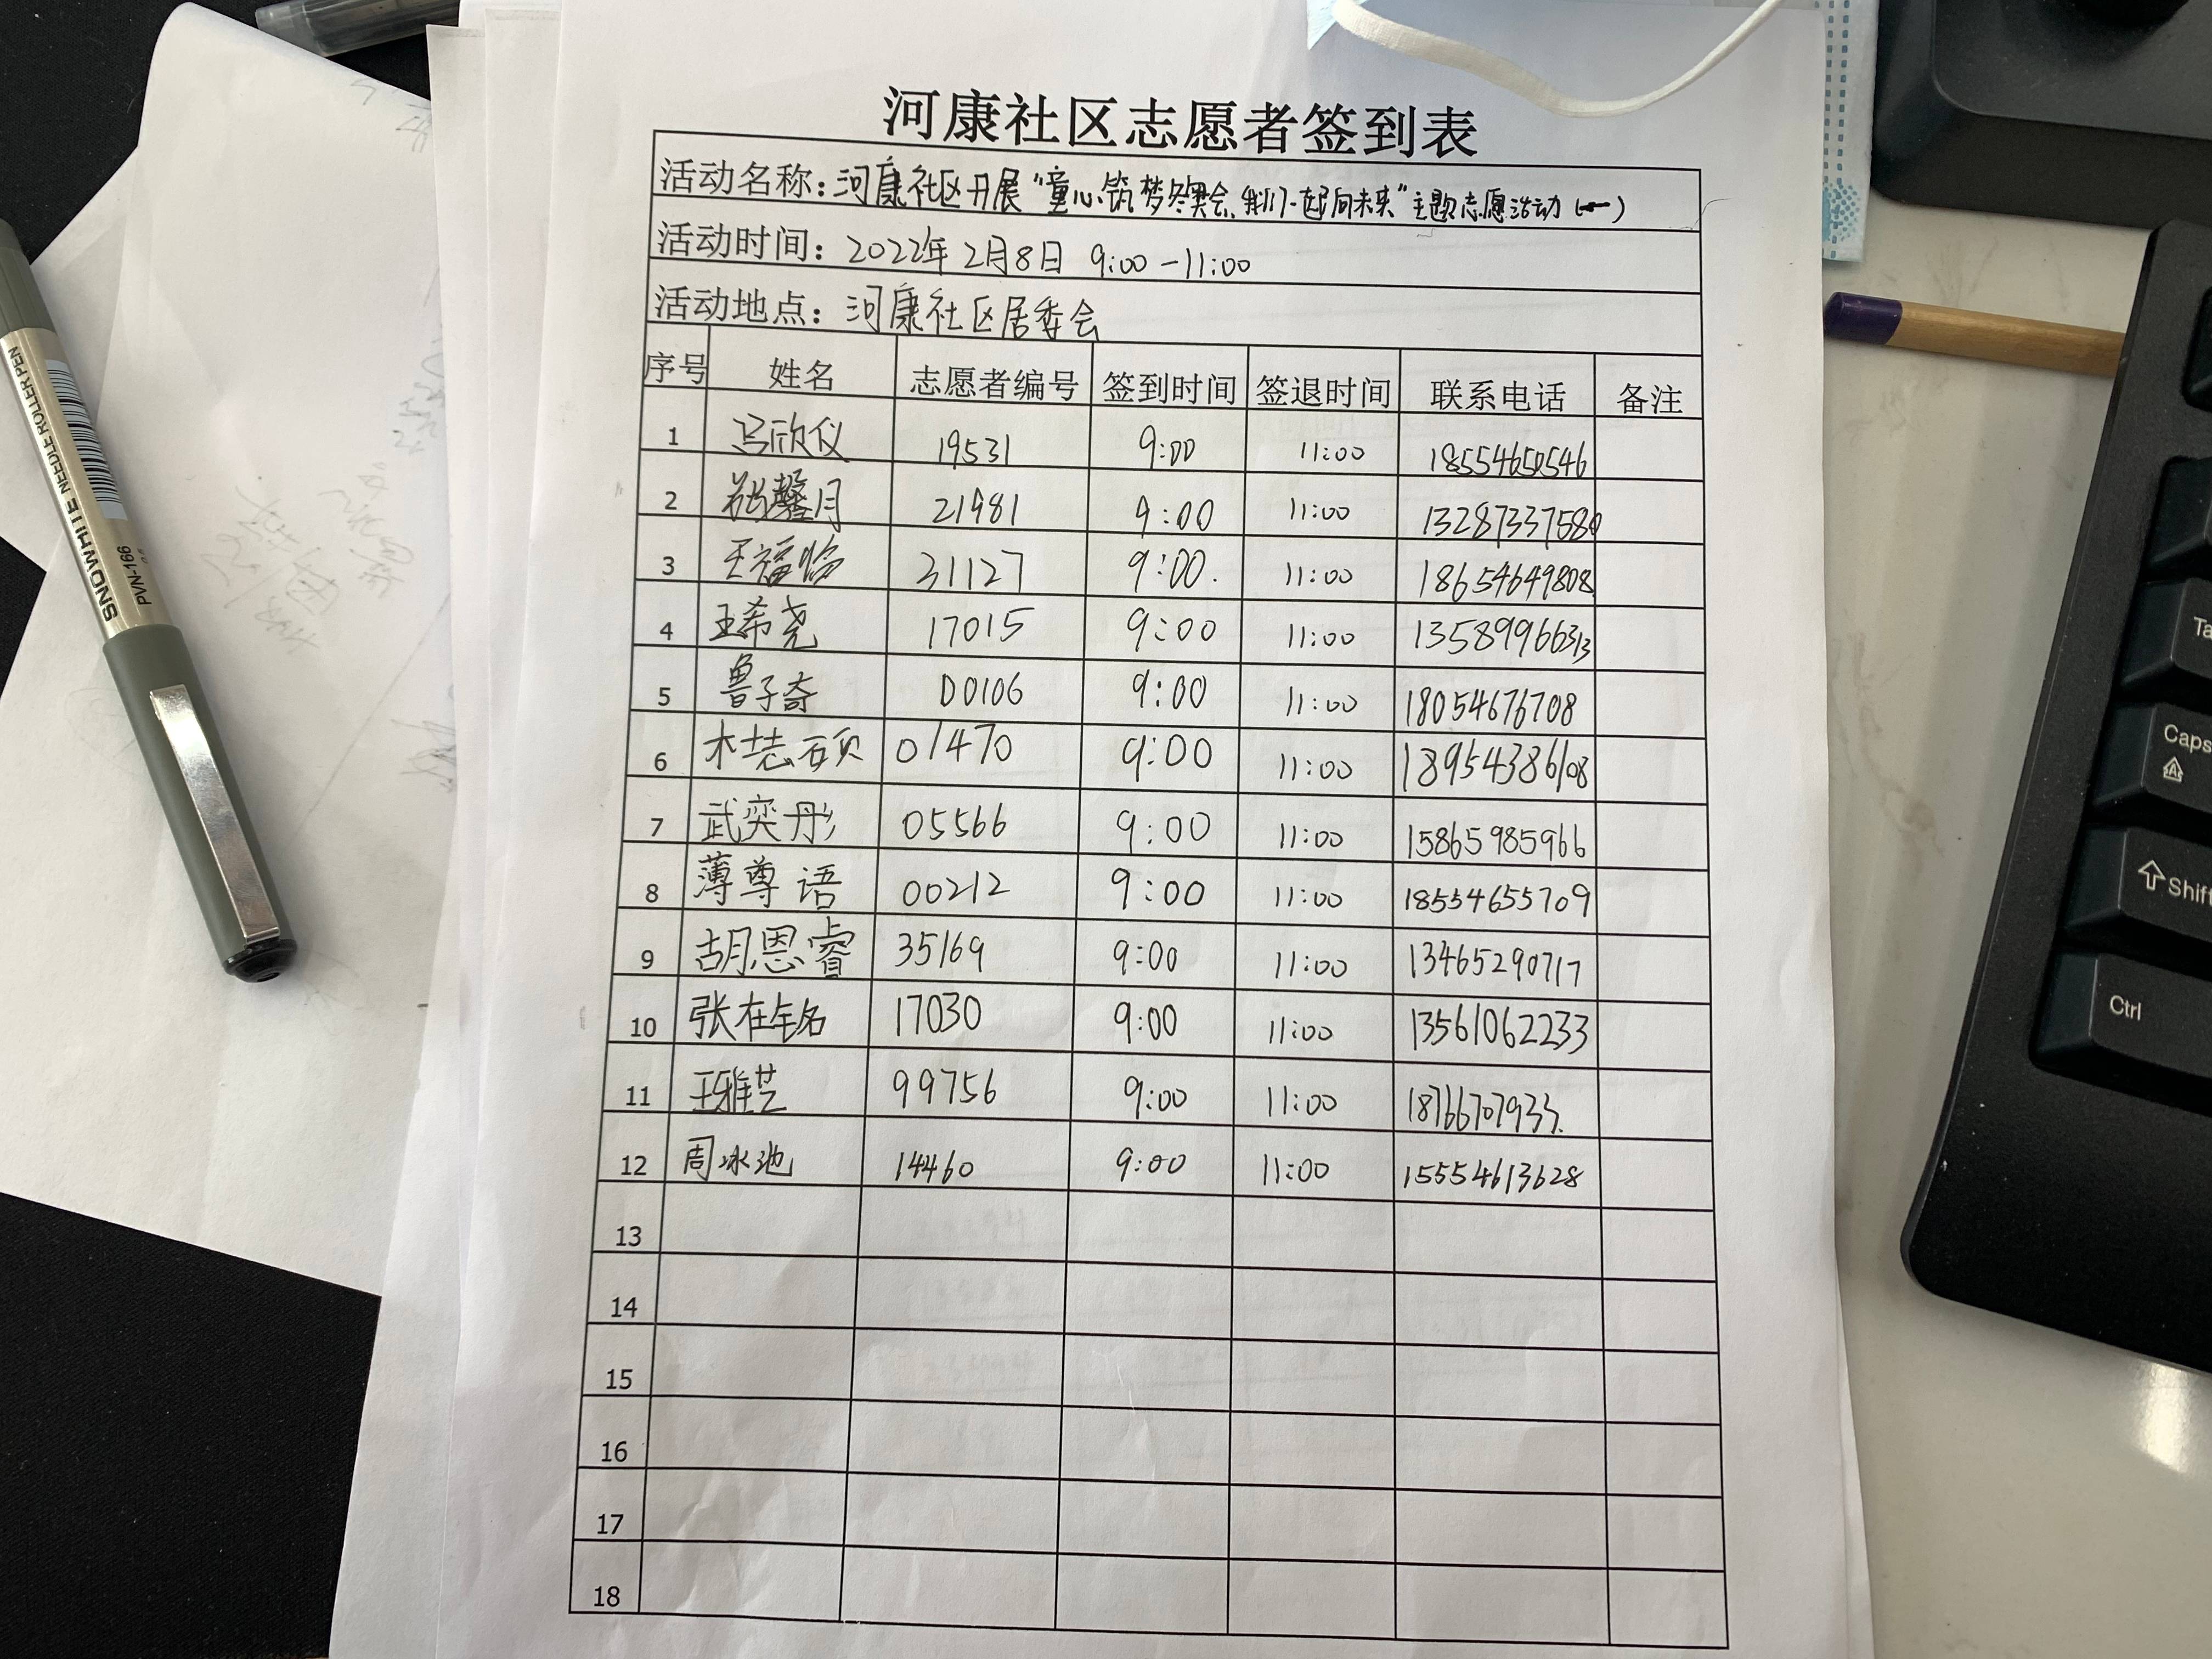 河康社区志愿者签到表
活动名称:河康社区开展"童心筑梦冬奥会,我们一起向未来"主题志愿活动(一)
活动时间:2022年2月8日 9:00-11:00
活动地点:河康社区居委会
序号 姓名 志愿者编号 签到时间 签退时间 联系电话 备注
1 冯欣仪 19531 9:00 11:00 18554650546
2 馨月 21981 9:00 11:00 13287337580
3 王福 31127 9:00. 11:00 18654649808
4 王希尧 17015 9:00 11:00 13589966313
5 鲁子奇 D0106 9:00 11:00 18054676708
6 林志硕 01470 9:00 11:00 18954386108
7 武奕彤 05566 9:00 11:00 15865985966
8 薄尊语 00212 9:00 11:00 18554655709
9 胡恩睿 35169 9:00 11:00 13465290717
10 张在铭 17030 9:00 11:00 13561062233
11 王雅芝 99756 9:00 11:00 18766707933.
12 周冰池 14460 9:00 11:00 15554613628
13
14
15
16
17
18
SNOWHITE NEEDLE ROLLER PEN
PVN-166
Ta
Caps
Shift
Ctrl